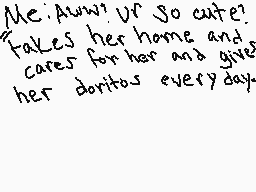 Me: Aww! Ur so cute!
"takes her home and
cares for her and gives
her doritos every day.